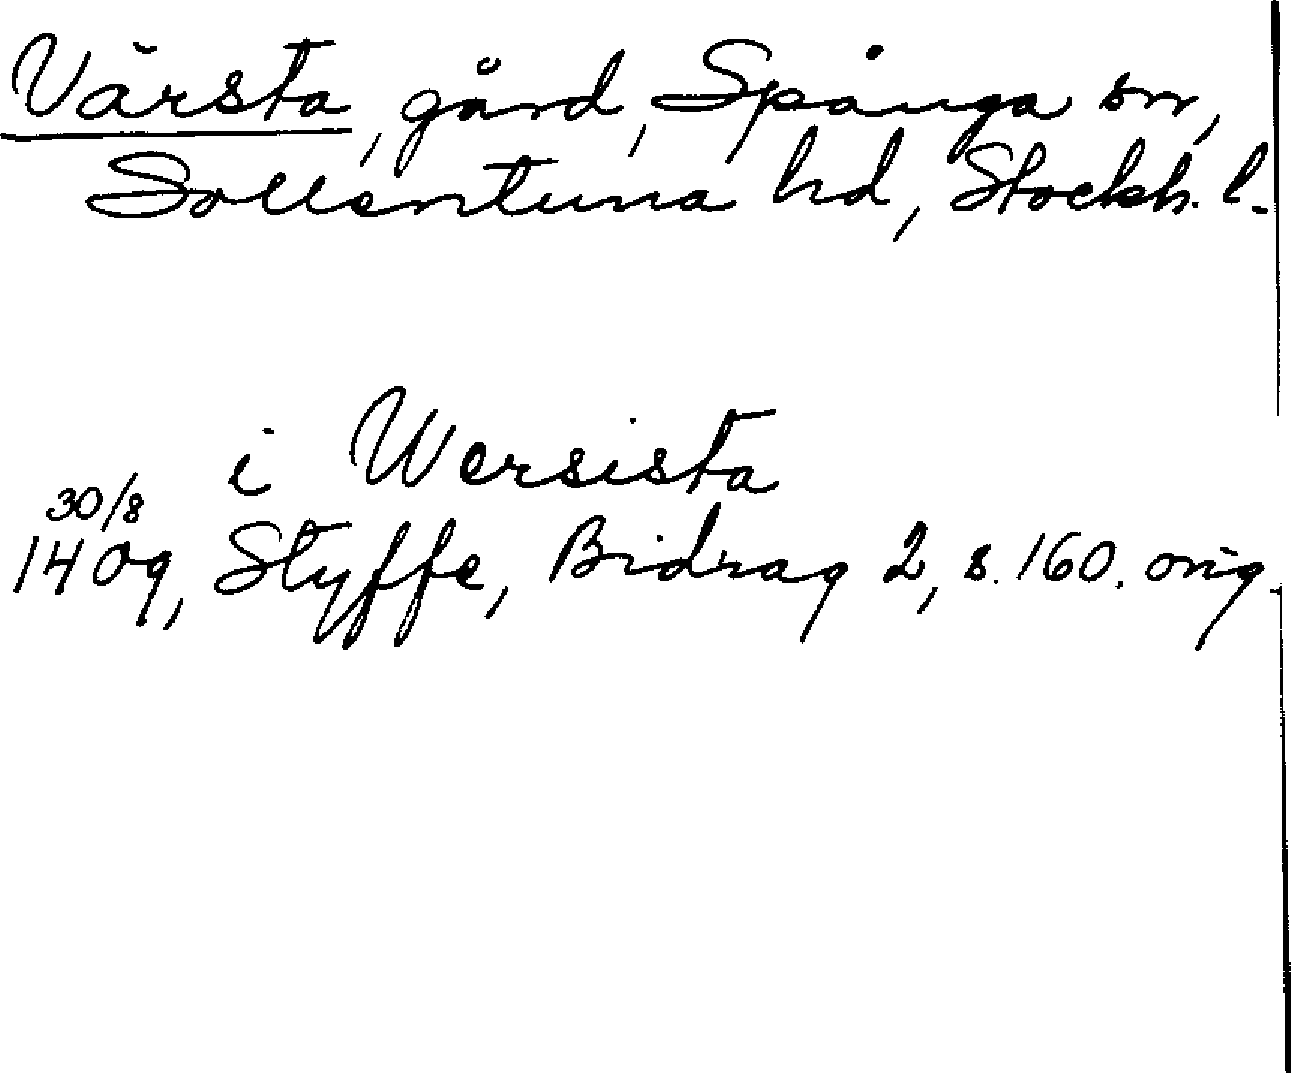 Värsta, gård, Spånga sn,
Sollentuna hd, Stockh. l.
i Wersista
30/8
1409, Styffe, Bidrag 2, s. 160. orig.